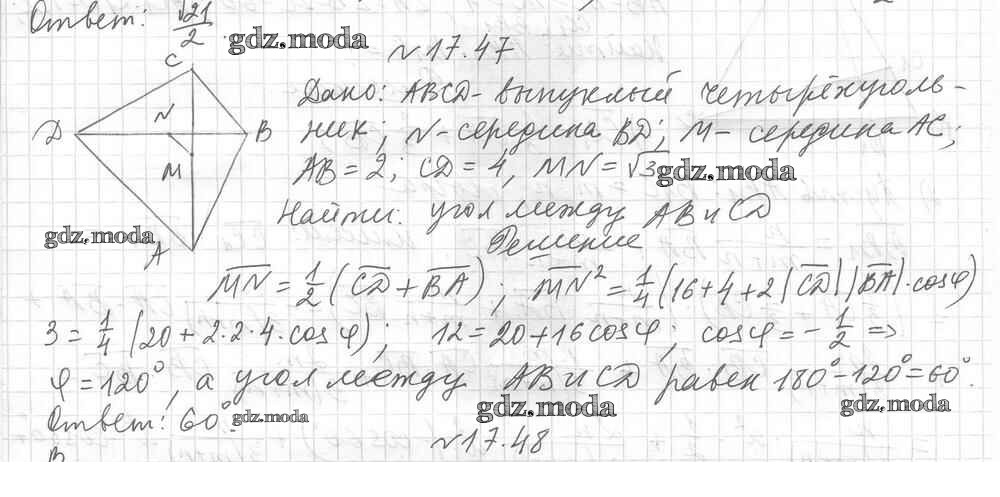 Ответ: √21/2.
gdz.moda
N 17.47
C
Дано: ABCD - выпуклый четырёхуголь-
D N B ник; N - середина BD; M - середина AC;
M AB = 2; CD = 4, MN = √3
gdz.moda
Найти: угол между AB и CD
gdz.moda
A
Решение
MN = 1/2 (CD + BA); MN² = 1/4 (16 + 4 + 2|CD||BA|·cosφ)
3 = 1/4 (20 + 2·2·4·cosφ); 12 = 20 + 16cosφ; cosφ = - 1/2 =>
φ = 120°, а угол между AB и CD равен 180° - 120° = 60°.
Ответ: 60°.
gdz.moda
gdz.moda
gdz.moda
N 17.48